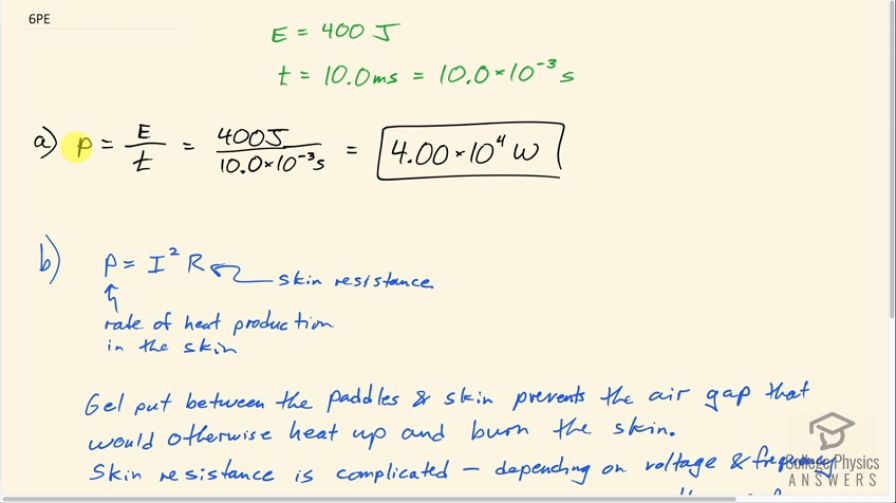 6PE
E = 400 J
t = 10.0ms = 10.0×10⁻³ s
a) P = E/t = 400J/10.0×10⁻³s = 4.00×10⁴ W
b)
P = I² R
skin resistance
rate of heat production
in the skin
Gel put between the paddles & skin prevents the air gap that
would otherwise heat up and burn the skin.
Skin resistance is complicated – depending on voltage & frequency
College Physics
ANSWERS